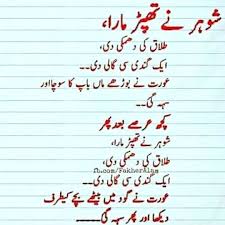 شوہر نے تھپڑ مارا،
طلاق کی دھمکی دی،
ایک گندی سی گالی دی۔۔
عورت نے بوڑھے ماں باپ کا سوچا اور
سہہ گئی۔۔
کچھ عرصے بعد پھر
شوہر نے تھپڑ مارا،
طلاق کی دھمکی دی،
fb.com/FakherAlam
ایک گندی سی گالی دی۔۔
عورت نے گود میں بیٹھے بچے کیطرف
دیکھا اور پھر سہہ گئی۔۔۔۔